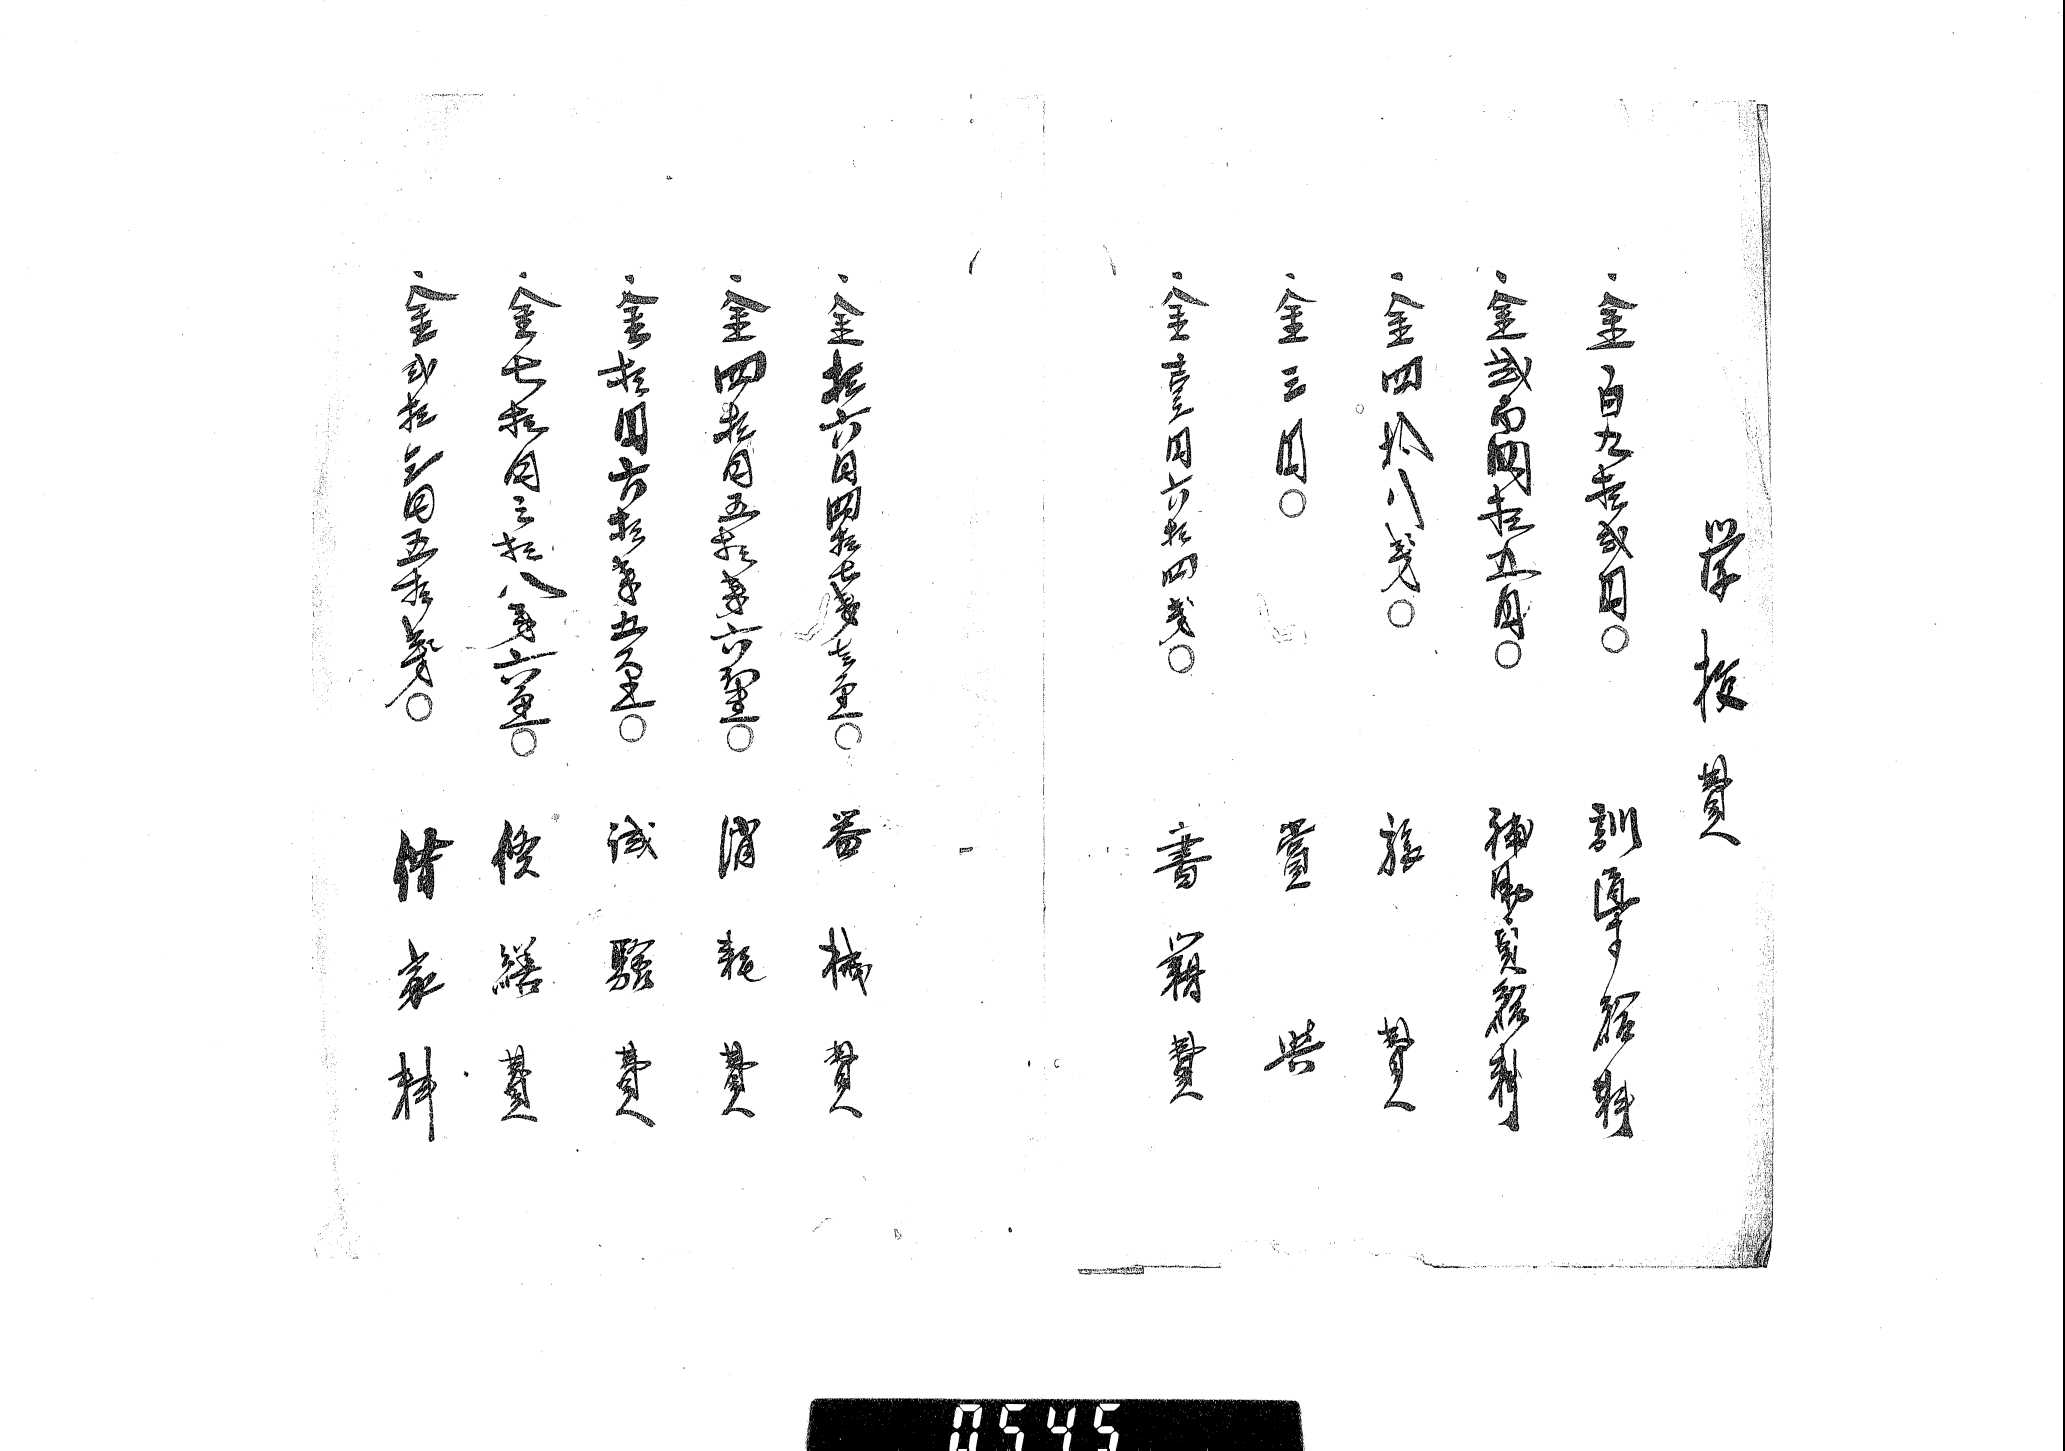 学校費
金百九拾弐円○ 訓導給料
金弐百四拾五円○ 補助員給料
金四拾八銭○ 旅費
金三円○ 賞与
金壹円六拾四銭○ 書籍費
金拾六円四拾七銭七厘○ 器械費
金四拾円五拾銭六厘○ 消耗費
金拾円六拾銭五厘○ 試験費
金七拾円三拾八銭六厘○ 修繕費
金弐拾 円五拾銭○ 借家料
0545